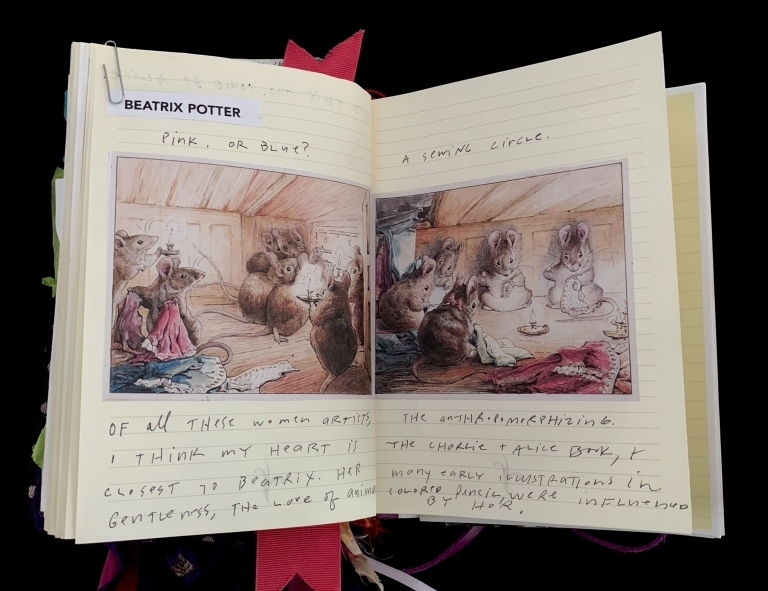 BEATRIX POTTER
PINK. OR BLUE?
OF all THESE women ARTISTS,
I THINK MY HEART IS
CLOSEST TO BEATRIX. HER
GENTLENESS, THE LOVE OF
A SEWING CIRCLE.
THE ANTHROPOMORPHIZING.
THE CHARLIE + ALICE BOOK, &
MANY EARLY ILLUSTRATIONS IN
COLORED PENCIL, WERE INFLUENCED
BY HER.